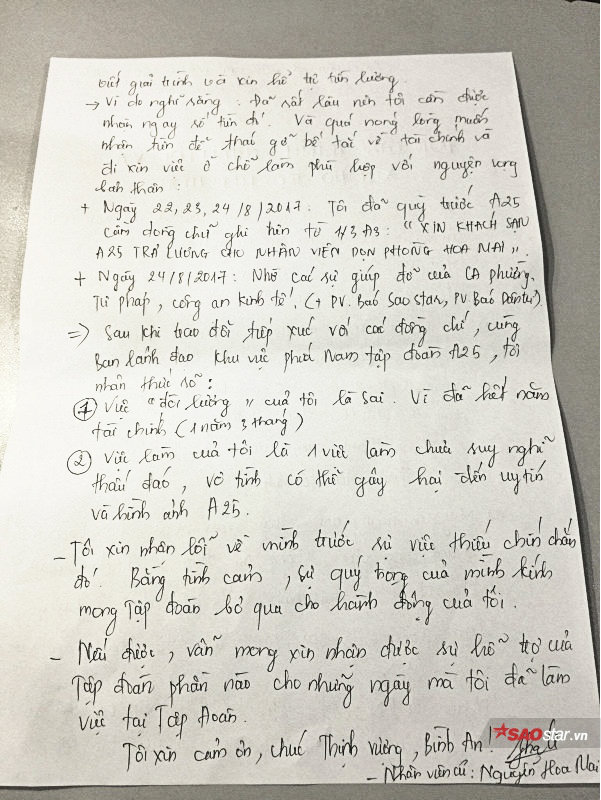 viết giải trình và xin hỗ trợ tiền lương.
→ Vì do nghĩ rằng : Đã rất lâu nên tôi cần được
nhận ngay số tiền đó. Và quá nóng lòng muốn
nhận tiền để tháo gỡ bế tắc về tài chính và
đi xin việc ở chỗ làm phù hợp với nguyện vọng
bản thân :
+ Ngày 22, 23, 24/8/2017: Tôi đã quỳ trước A25
cầm dòng chữ ghi trên tờ A3: "XIN KHÁCH SẠN
A25 TRẢ LƯƠNG CHO NHÂN VIÊN DỌN PHÒNG HOA MAI".
+ Ngày 24/8/2017: Nhờ có sự giúp đỡ của CA phường,
Tư pháp, công an kinh tế. (+ PV. Báo Sao star, PV. Báo Dân trí).
=> Sau khi trao đổi tiếp xúc với các đồng chí, cùng
Ban lãnh đạo khu vực phía Nam tập đoàn A25, tôi
nhận thức rõ:
① Việc "đòi lương" của tôi là sai. Vì đã hết năm
tài chính (1 năm 3 tháng)
② Việc làm của tôi là 1 việc làm chưa suy nghĩ
thấu đáo, vô tình có thể gây hại đến uy tín
và hình ảnh A25.
- Tôi xin nhận lỗi về mình trước sự việc thiếu chín chắn
đó. Bằng tình cảm, sự quý trọng của mình kính
mong Tập đoàn bỏ qua cho hành động của tôi.
- Nếu được, vẫn mong xin nhận được sự hỗ trợ của
Tập đoàn phần nào cho những ngày mà tôi đã làm
việc tại Tập Đoàn.
Tôi xin cảm ơn, chúc Thịnh vượng, Bình An!
- Nhân viên cũ: Nguyễn Hoa Mai
SAOstar.vn